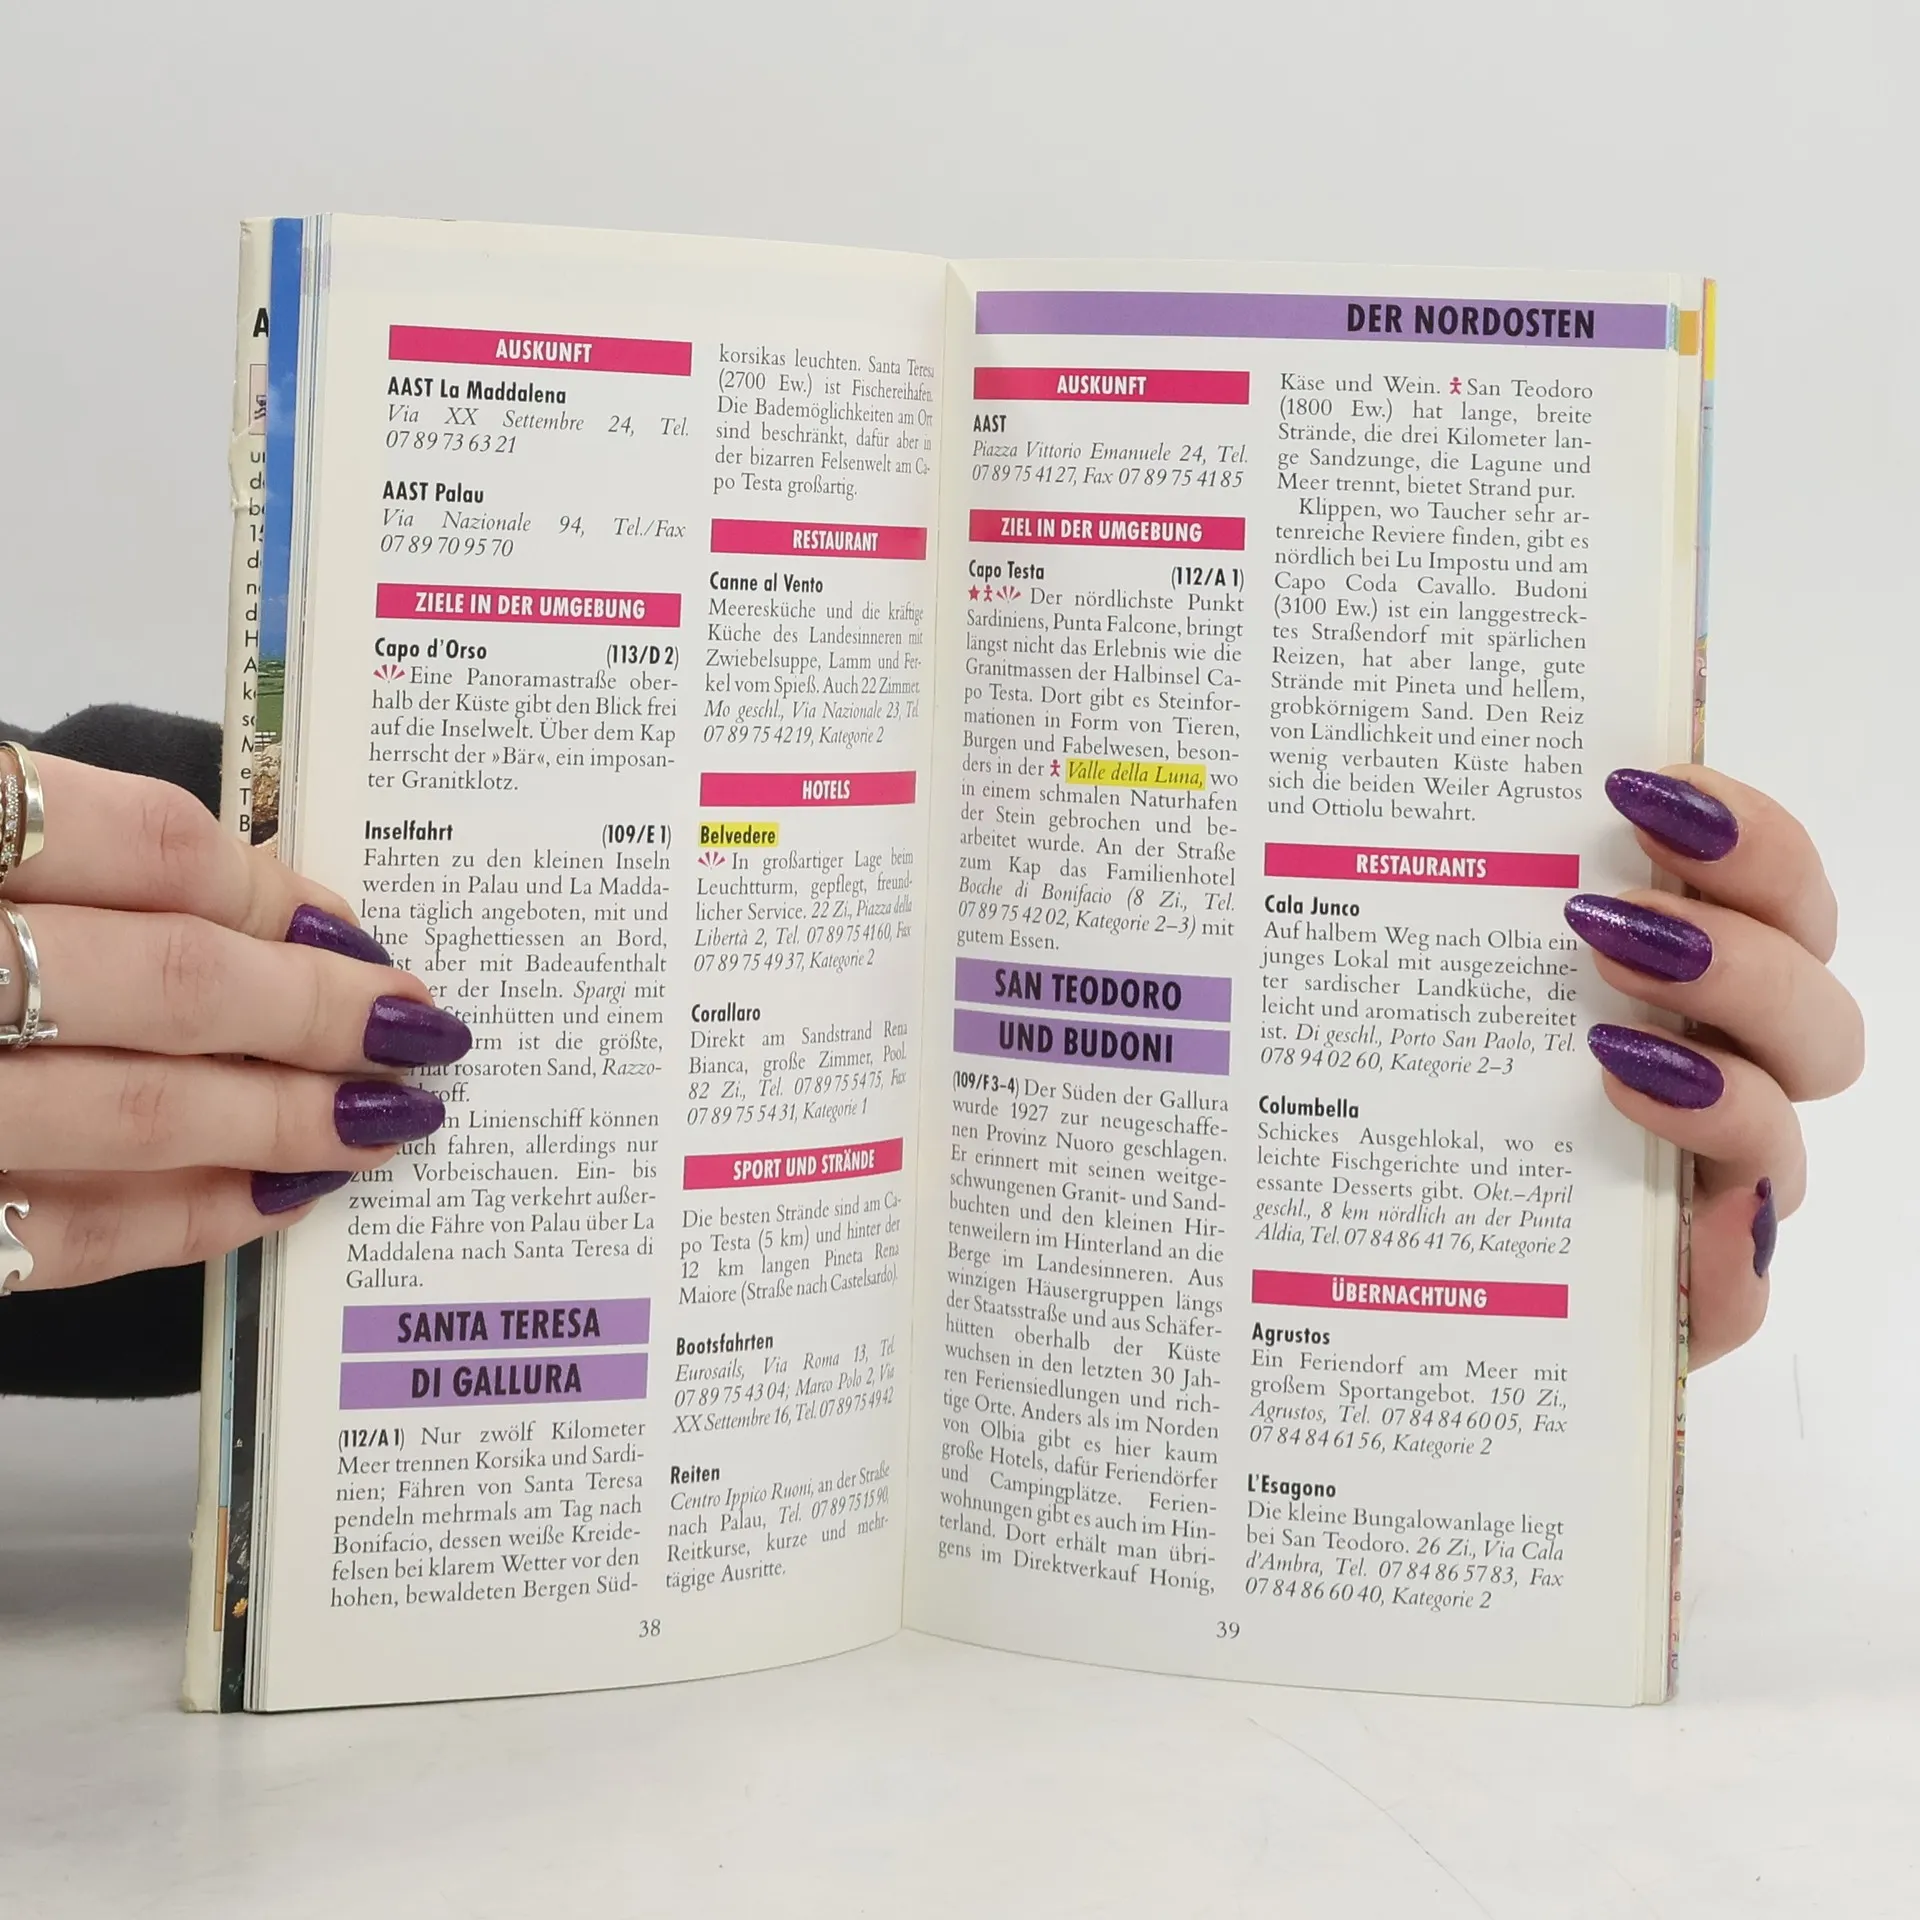 AUSKUNFT
AAST La Maddalena
Via XX Settembre 24, Tel.
07 89 73 63 21
AAST Palau
Via Nazionale 94, Tel./Fax
07 89 70 95 70
ZIELE IN DER UMGEBUNG
Capo d'Orso (113/D 2)
Eine Panoramastraße ober-
halb der Küste gibt den Blick frei
auf die Inselwelt. Über dem Kap
herrscht der »Bär«, ein imposan-
ter Granitklotz.
Inselfahrt (109/E 1)
Fahrten zu den kleinen Inseln
werden in Palau und La Madda-
lena täglich angeboten, mit und
ohne Spaghettiessen an Bord,
ist aber mit Badeaufenthalt
der Inseln. Spargi mit
Steinhütten und einem
ist die größte,
hat rosaroten Sand, Razzo-
Linienschiff können
auch fahren, allerdings nur
zum Vorbeischauen. Ein- bis
zweimal am Tag verkehrt außer-
dem die Fähre von Palau über La
Maddalena nach Santa Teresa di
Gallura.
SANTA TERESA
DI GALLURA
(112/A 1) Nur zwölf Kilometer
Meer trennen Korsika und Sardi-
nien; Fähren von Santa Teresa
pendeln mehrmals am Tag nach
Bonifacio, dessen weiße Kreide-
felsen bei klarem Wetter vor den
hohen, bewaldeten Bergen Süd-
korsikas leuchten. Santa Teresa
(2700 Ew.) ist Fischereihafen.
Die Bademöglichkeiten am Ort
sind beschränkt, dafür aber in
der bizarren Felsenwelt am Ca-
po Testa großartig.
RESTAURANT
Canne al Vento
Meeresküche und die kräftige
Küche des Landesinneren mit
Zwiebelsuppe, Lamm und Fer-
kel vom Spieß. Auch 22 Zimmer.
Mo geschl., Via Nazionale 23, Tel.
07 89 75 42 19, Kategorie 2
HOTELS
Belvedere
In großartiger Lage beim
Leuchtturm, gepflegt, freund-
licher Service. 22 Zi., Piazza della
Libertà 2, Tel. 07 89 75 41 60, Fax
07 89 75 49 37, Kategorie 2
Corallaro
Direkt am Sandstrand Rena
Bianca, große Zimmer, Pool.
82 Zi., Tel. 07 89 75 54 75, Fax
07 89 75 54 31, Kategorie 1
SPORT UND STRÄNDE
Die besten Strände sind am Ca-
po Testa (5 km) und hinter der
12 km langen Pineta Rena
Maiore (Straße nach Castelsardo).
Bootsfahrten
Eurosails, Via Roma 13, Tel.
07 89 75 43 04; Marco Polo 2, Via
XX Settembre 16, Tel. 07 89 75 49 42
Reiten
Centro Ippico Ruoni, an der Straße
nach Palau, Tel. 07 89 75 15 90,
Reitkurse, kurze und mehr-
tägige Ausritte.
38
DER NORDOSTEN
AUSKUNFT
AAST
Piazza Vittorio Emanuele 24, Tel.
07 89 75 41 27, Fax 07 89 75 41 85
ZIEL IN DER UMGEBUNG
Capo Testa (112/A 1)
Der nördlichste Punkt
Sardiniens, Punta Falcone, bringt
längst nicht das Erlebnis wie die
Granitmassen der Halbinsel Ca-
po Testa. Dort gibt es Steinfor-
mationen in Form von Tieren,
Burgen und Fabelwesen, beson-
ders in der Valle della Luna, wo
in einem schmalen Naturhafen
der Stein gebrochen und be-
arbeitet wurde. An der Straße
zum Kap das Familienhotel
Bocche di Bonifacio (8 Zi., Tel.
07 89 75 42 02, Kategorie 2–3) mit
gutem Essen.
SAN TEODORO
UND BUDONI
(109/F 3–4) Der Süden der Gallura
wurde 1927 zur neugeschaffe-
nen Provinz Nuoro geschlagen.
Er erinnert mit seinen weitge-
schwungenen Granit- und Sand-
buchten und den kleinen Hir-
tenweilern im Hinterland an die
Berge im Landesinneren. Aus
winzigen Häusergruppen längs
der Staatsstraße und aus Schäfer-
hütten oberhalb der Küste
wuchsen in den letzten 30 Jah-
ren Feriensiedlungen und rich-
tige Orte. Anders als im Norden
von Olbia gibt es hier kaum
große Hotels, dafür Feriendörfer
und Campingplätze. Ferien-
wohnungen gibt es auch im Hin-
terland. Dort erhält man übri-
gens im Direktverkauf Honig,
Käse und Wein. San Teodoro
(1800 Ew.) hat lange, breite
Strände, die drei Kilometer lan-
ge Sandzunge, die Lagune und
Meer trennt, bietet Strand pur.
Klippen, wo Taucher sehr ar-
tenreiche Reviere finden, gibt es
nördlich bei Lu Impostu und am
Capo Coda Cavallo. Budoni
(3100 Ew.) ist ein langgestreck-
tes Straßendorf mit spärlichen
Reizen, hat aber lange, gute
Strände mit Pineta und hellem,
grobkörnigem Sand. Den Reiz
von Ländlichkeit und einer noch
wenig verbauten Küste haben
sich die beiden Weiler Agrustos
und Ottiolu bewahrt.
RESTAURANTS
Cala Junco
Auf halbem Weg nach Olbia ein
junges Lokal mit ausgezeichne-
ter sardischer Landküche, die
leicht und aromatisch zubereitet
ist. Di geschl., Porto San Paolo, Tel.
078 94 02 60, Kategorie 2–3
Columbella
Schickes Ausgehlokal, wo es
leichte Fischgerichte und inter-
essante Desserts gibt. Okt.–April
geschl., 8 km nördlich an der Punta
Aldia, Tel. 07 84 86 41 76, Kategorie 2
ÜBERNACHTUNG
Agrustos
Ein Feriendorf am Meer mit
großem Sportangebot. 150 Zi.,
Agrustos, Tel. 07 84 84 60 05, Fax
07 84 84 61 56, Kategorie 2
L'Esagono
Die kleine Bungalowanlage liegt
bei San Teodoro. 26 Zi., Via Cala
d'Ambra, Tel. 07 84 86 57 83, Fax
07 84 86 60 40, Kategorie 2
39